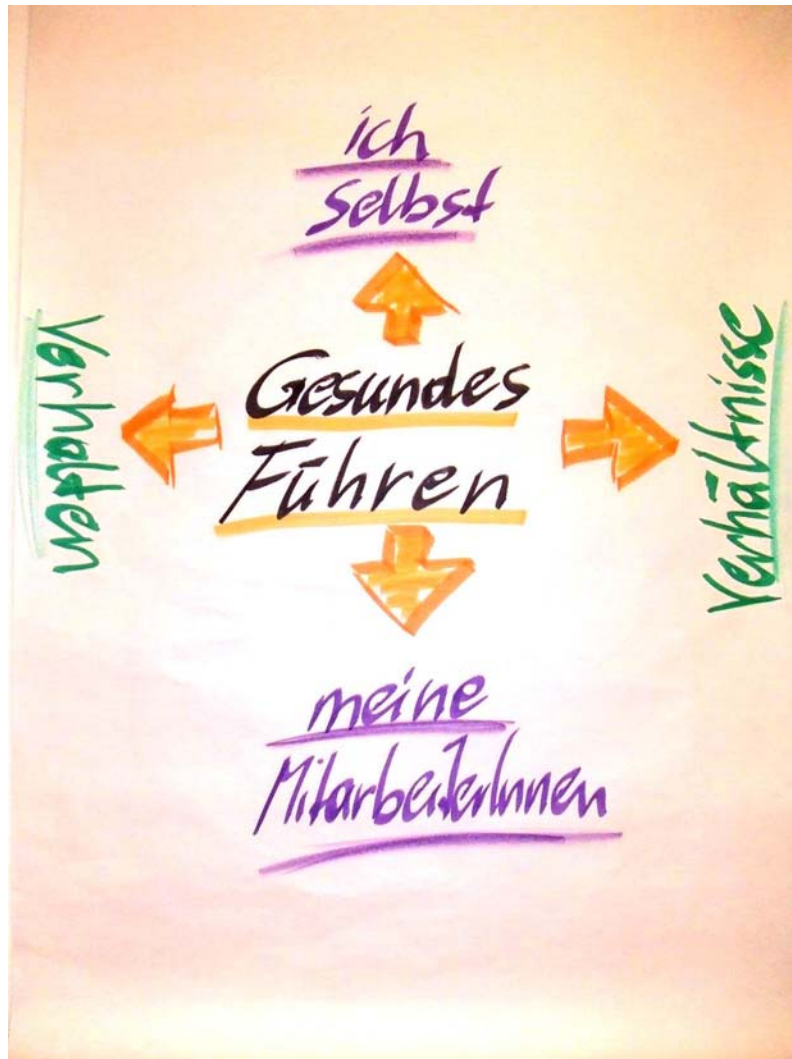 ich
Selbst
Verhalten
Gesundes
Führen
Verhältnisse
meine
MitarbeiterInnen